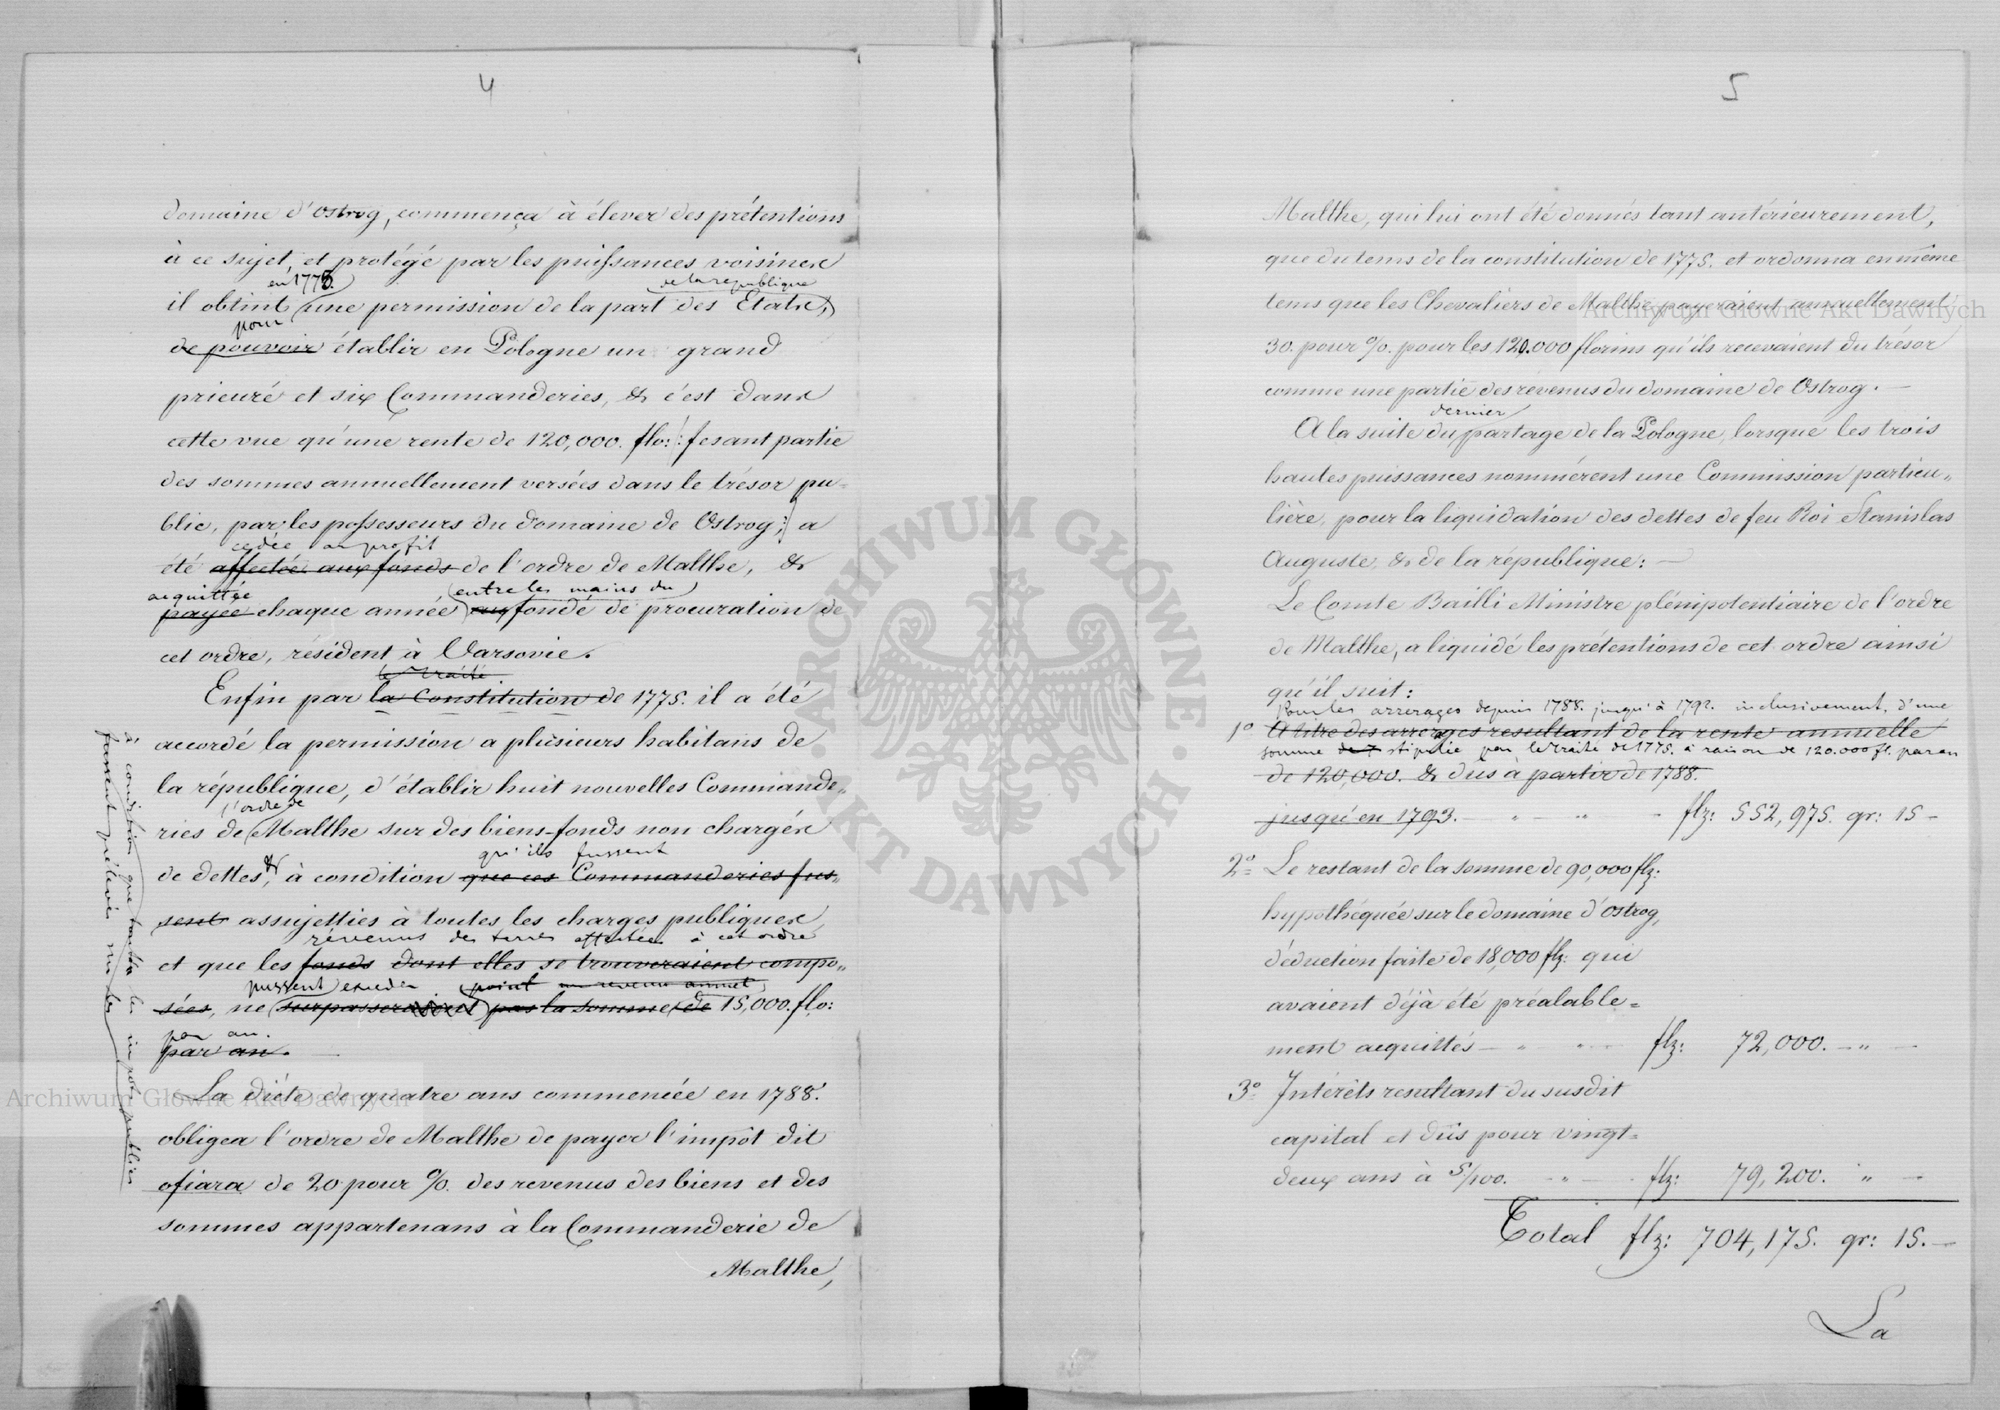 4
domaine d'Ostrog, commença à élever des prétentions
à ce sujet, et protégé par les puissances voisines
en 1775. de la republique
il obtint une permission de la part des Etats,
pour
de pouvoir établir en Pologne un grand
prieuré et six Commanderies, & c'est dans
cette vue qu'une rente de 120,000. flo: /: fesant partie
des sommes annuellement versées dans le trésor pu-
blic, par les possesseurs du domaine de Ostrog :/ a
cedée au profit
été affectée aux fonds de l'ordre de Malthe, &
acquittée entre les mains du
payée chaque année au fondé de procuration de
cet ordre, résident à Varsovie.
le traité
Enfin par la Constitution de 1775. il a été
accordé la permission a plusieurs habitans de
la république, d'établir huit nouvelles Commande-
l'ordre de
ries de Malthe sur des biens-fonds non chargés
de dettes, & à condition que ces Commanderies fus-
qu'ils fussent
sent assujetties à toutes les charges publiques
révenus des terres affectées à cet ordre
et que les fonds dont elles se trouveraient compo-
pussent exceder point un revenu annuel
sées, ne surpasseraient pas la somme de 15,000. flo:
par an.
par an.
à condition que toutes les impôts publics
fussent prélevés sur les
La diéte de quatre ans commencée en 1788.
obligea l'ordre de Malthe de payer l'impôt dit
ofiara de 20 pour %. des revenus des biens et des
sommes appartenans à la Commanderie de
Malthe,
5
Malthe, qui lui ont été donnés tant antérieurement,
que du tems de la constitution de 1775. et ordonna en même
tems que les Chevaliers de Malthe payeraient annuellement
30. pour %. pour les 120.000 florins qu'ils recevaient du trésor
comme une partie des révenus du domaine de Ostrog. —
dernier
A la suite du partage de la Pologne, lorsque les trois
hautes puissances nommérent une Commission particu-
lière, pour la liquidation des dettes de feu Roi Stanislas
Auguste, & de la république: —
Le Comte Bailli Ministre plénipotentiaire de l'ordre
de Malthe, a liquidé les prétentions de cet ordre ainsi
qu'il suit:
Pour les arrerages depuis 1788. jusqu'à 1792. inclusivement, d'une
1° A titre des arrerages resultant de la rente annuelle
somme de stipulée par le traité de 1775. à raison de 120.000 fl. par an
de 120,000. & dus à partir de 1788.
jusqu'en 1793. - " - " - flz: 552,975. gr: 15 -
2° Le restant de la somme de 90,000 flz:
hypothéquée sur le domaine d'Ostrog,
déduction faite de 18,000 flz: qui
avaient déjà été préalable-
ment acquittés — " — " — flz: 72,000. — " —
3° Intérêts resultant du susdit
capital et dûs pour vingt-
deux ans à 5/100. — " — flz: 79,200. " —
Total flz: 704,175. gr: 15. —
La
ARCHIWUM GŁÓWNE AKT DAWNYCH
Archiwum Główne Akt Dawnych
Archiwum Główne Akt Dawnych